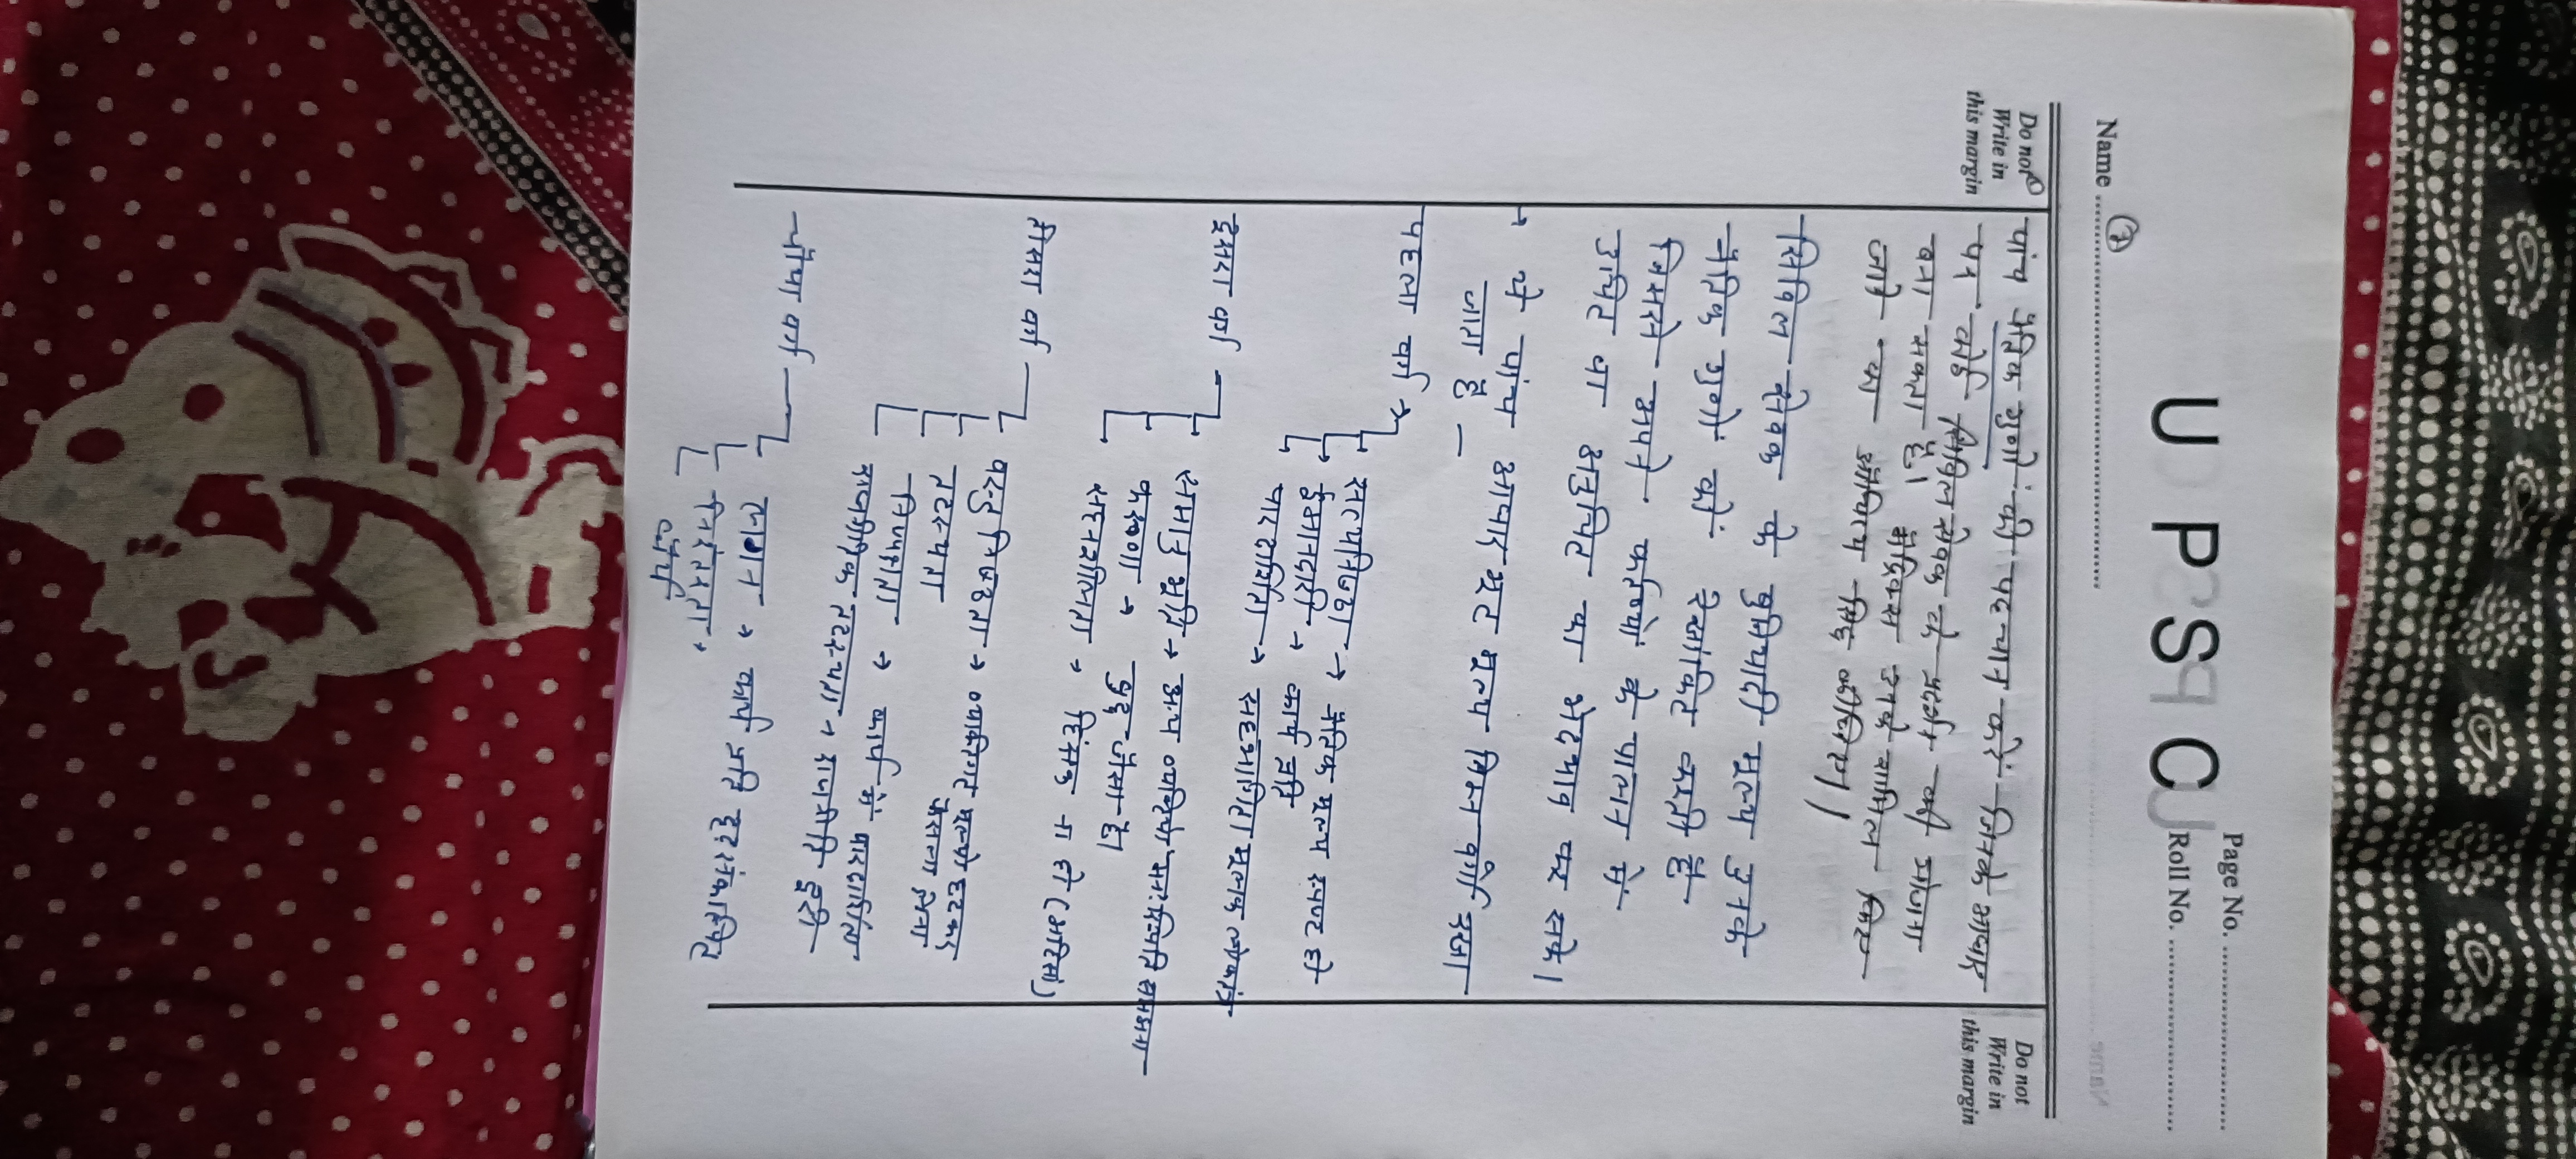 Page No.
UPSC
Roll No.
Name
(7)
Do not
Write in
this margin
Do not
Write in
this margin
पांच नैतिक गुणों की पहचान करें जिनके आधार
पर कोई सिविल सेवक के प्रदर्शन की योजना
बना सकता है। मैट्रिक्स में उनके शामिल किए
जाने का औचित्य सिद्ध कीजिए।
सिविल सेवक के बुनियादी मूल्य उनके
नैतिक गुणों को रेखांकित करती हैं
जिससे अपने कर्तव्यों के पालन में
उचित या अनुचित का भेदभाव कर सके।
→ ये पांच आधारभूत मूल्य निम्न वर्ग रखा
जाता है —
पहला वर्ग →
सत्यनिष्ठा → नैतिक मूल्य स्पष्ट हो
ईमानदारी → कार्य प्रति
पारदर्शिता → सहभागिता मूलक लोकतंत्र
दूसरा वर्ग →
समानुभूति → अन्य व्यक्तियों मनःस्थिति समझना
करुणा → बुद्ध जैसा है।
सहनशीलता → हिंसक ना हो (अहिंसा)
तीसरा वर्ग —
वस्तुनिष्ठता → व्यक्तिगत मूल्यो हटकर
फैसला लेना
तटस्थता
निष्पक्षता → कार्य में पारदर्शिता
राजनीतिक तटस्थता → राजनीति दूरी
चौथा वर्ग —
लगन → कार्य प्रति दृढ़संकल्पित
निरंतरता →
धैर्य